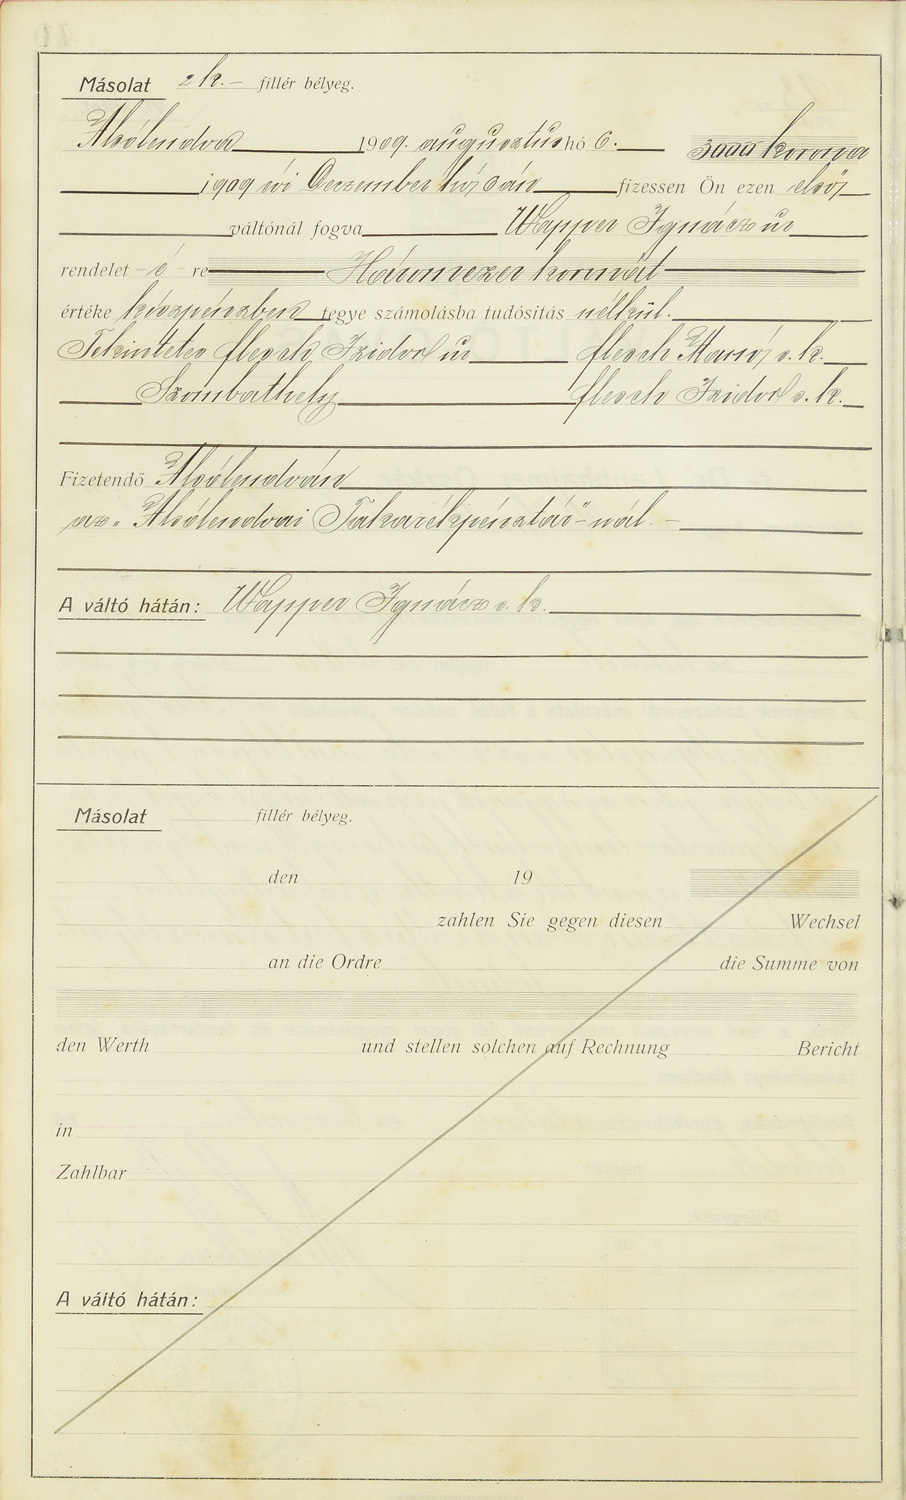 Másolat 2 k.– fillér bélyeg.
Alsólendva 1909. augusztus hó 6. 3000 korona
1909 évi Deczember hó 6 án fizessen Ön ezen első
váltónál fogva Wapper Ignácz úr
rendelet – é – re Háromezer koronát
értéke készpénzben tegye számolásba tudósitás nélkül.
Tekintetes flesch Izidor úr flesch s. k.
Szombathely flesch Izidor s. k.
Fizetendő Alsólendván
az „Alsólendvai Takarékpénztár"-nál. –
A váltó hátán: Wapper Ignácz s. k.
Másolat fillér bélyeg.
den 19
zahlen Sie gegen diesen Wechsel
an die Ordre die Summe von
den Werth und stellen solchen auf Rechnung Bericht
in
Zahlbar
A váltó hátán: